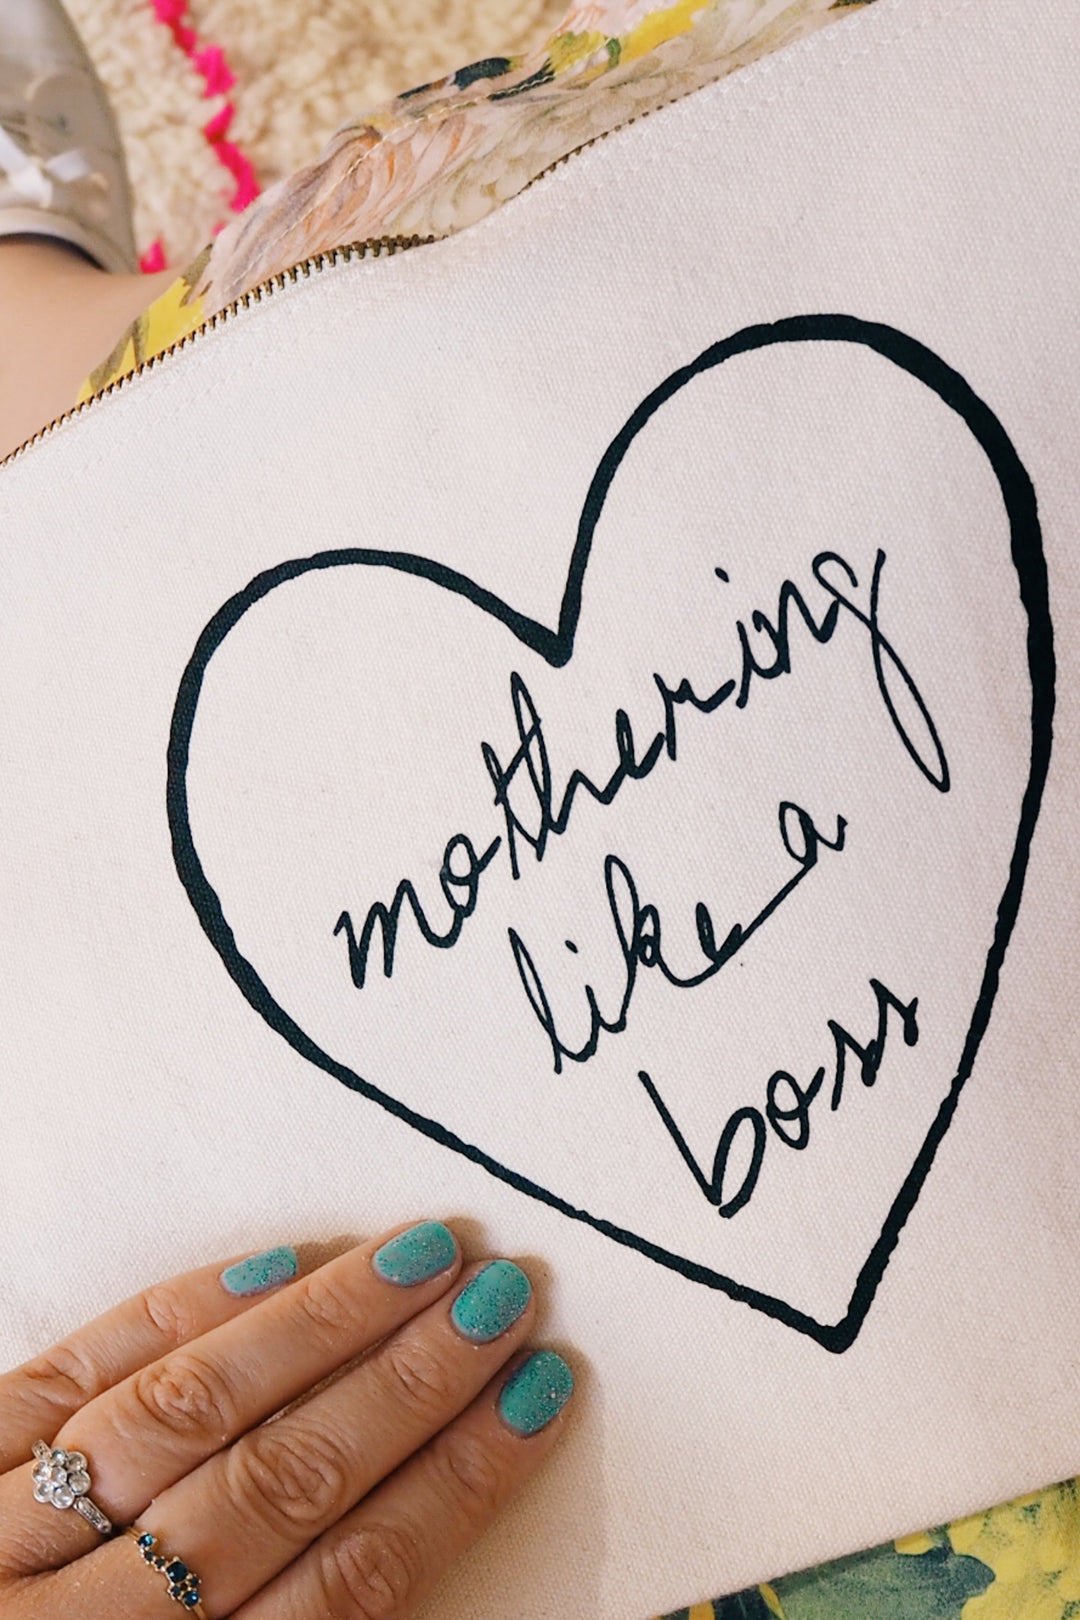 mothering
like a
boss